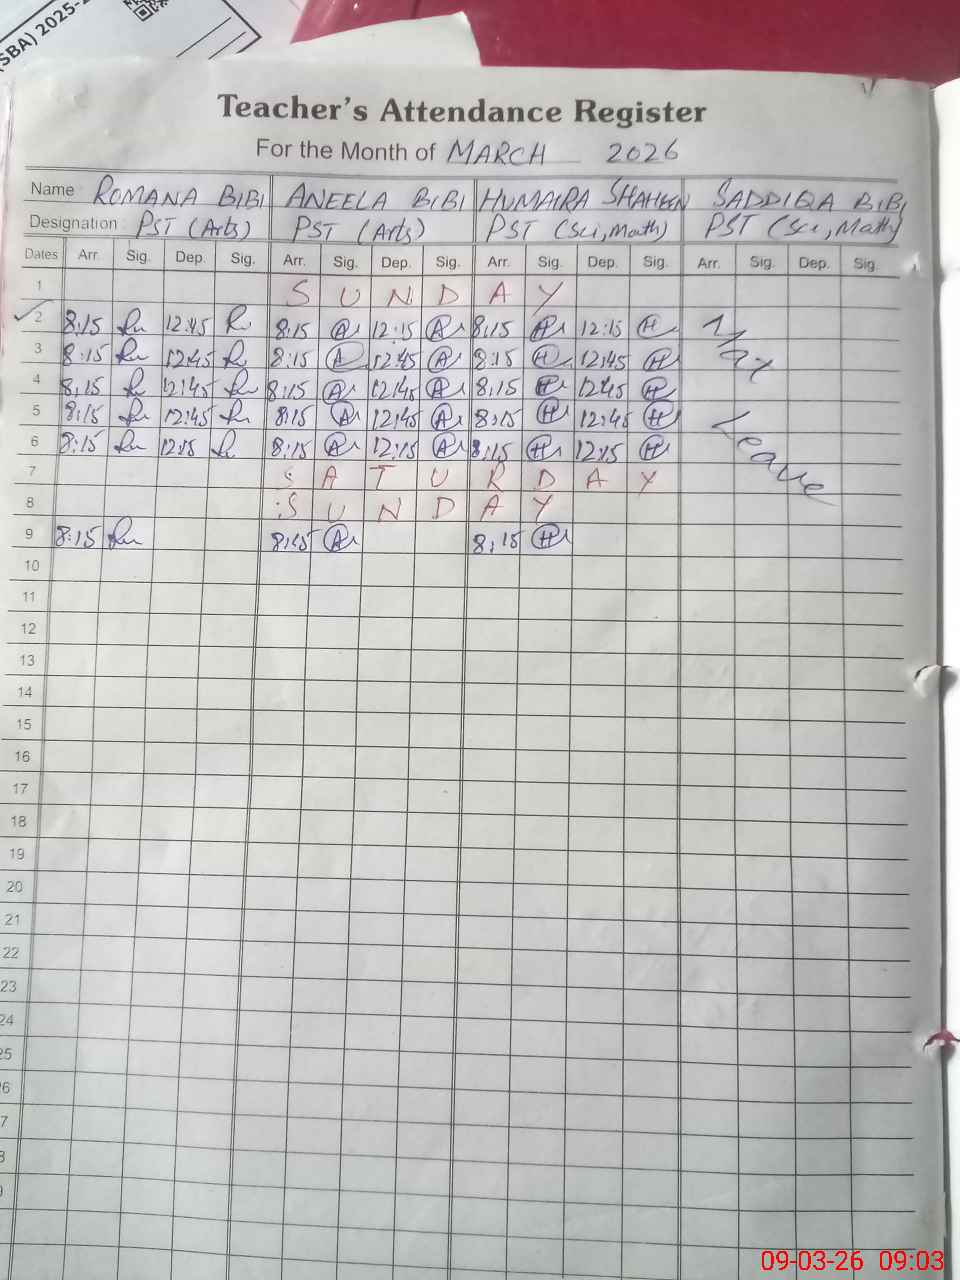 (SBA) 2025-2
Teacher's Attendance Register
For the Month of MARCH 2026
Name : ROMANA BIBI ANEELA BIBI HUMAIRA SHAHEEN SADDIQA BIBI
Designation : PST (Arts) PST (Arts) PST (Sci, Math) PST (Sci, Math)
Dates Arr. Sig. Dep. Sig. Arr. Sig. Dep. Sig. Arr. Sig. Dep. Sig. Arr. Sig. Dep. Sig.
1 SUNDAY
2 8:15 12:45 8:15 A 12:15 A 8:15 H 12:15 H
3 8:15 12:45 8:15 A 12:45 A 8:15 H 12:45 H
4 8:15 12:45 8:15 A 12:45 A 8:15 H 12:45 H
5 8:15 12:45 8:15 A 12:45 A 8:15 H 12:45 H Leave
6 8:15 12:15 8:15 A 12:15 A 8:15 H 12:15 H
7 SATURDAY
8 SUNDAY
9 8:15 8:15 A 8:15 H
10
11
12
13
14
15
16
17
18
19
20
21
22
23
24
25
26
7
8
09-03-26 09:03